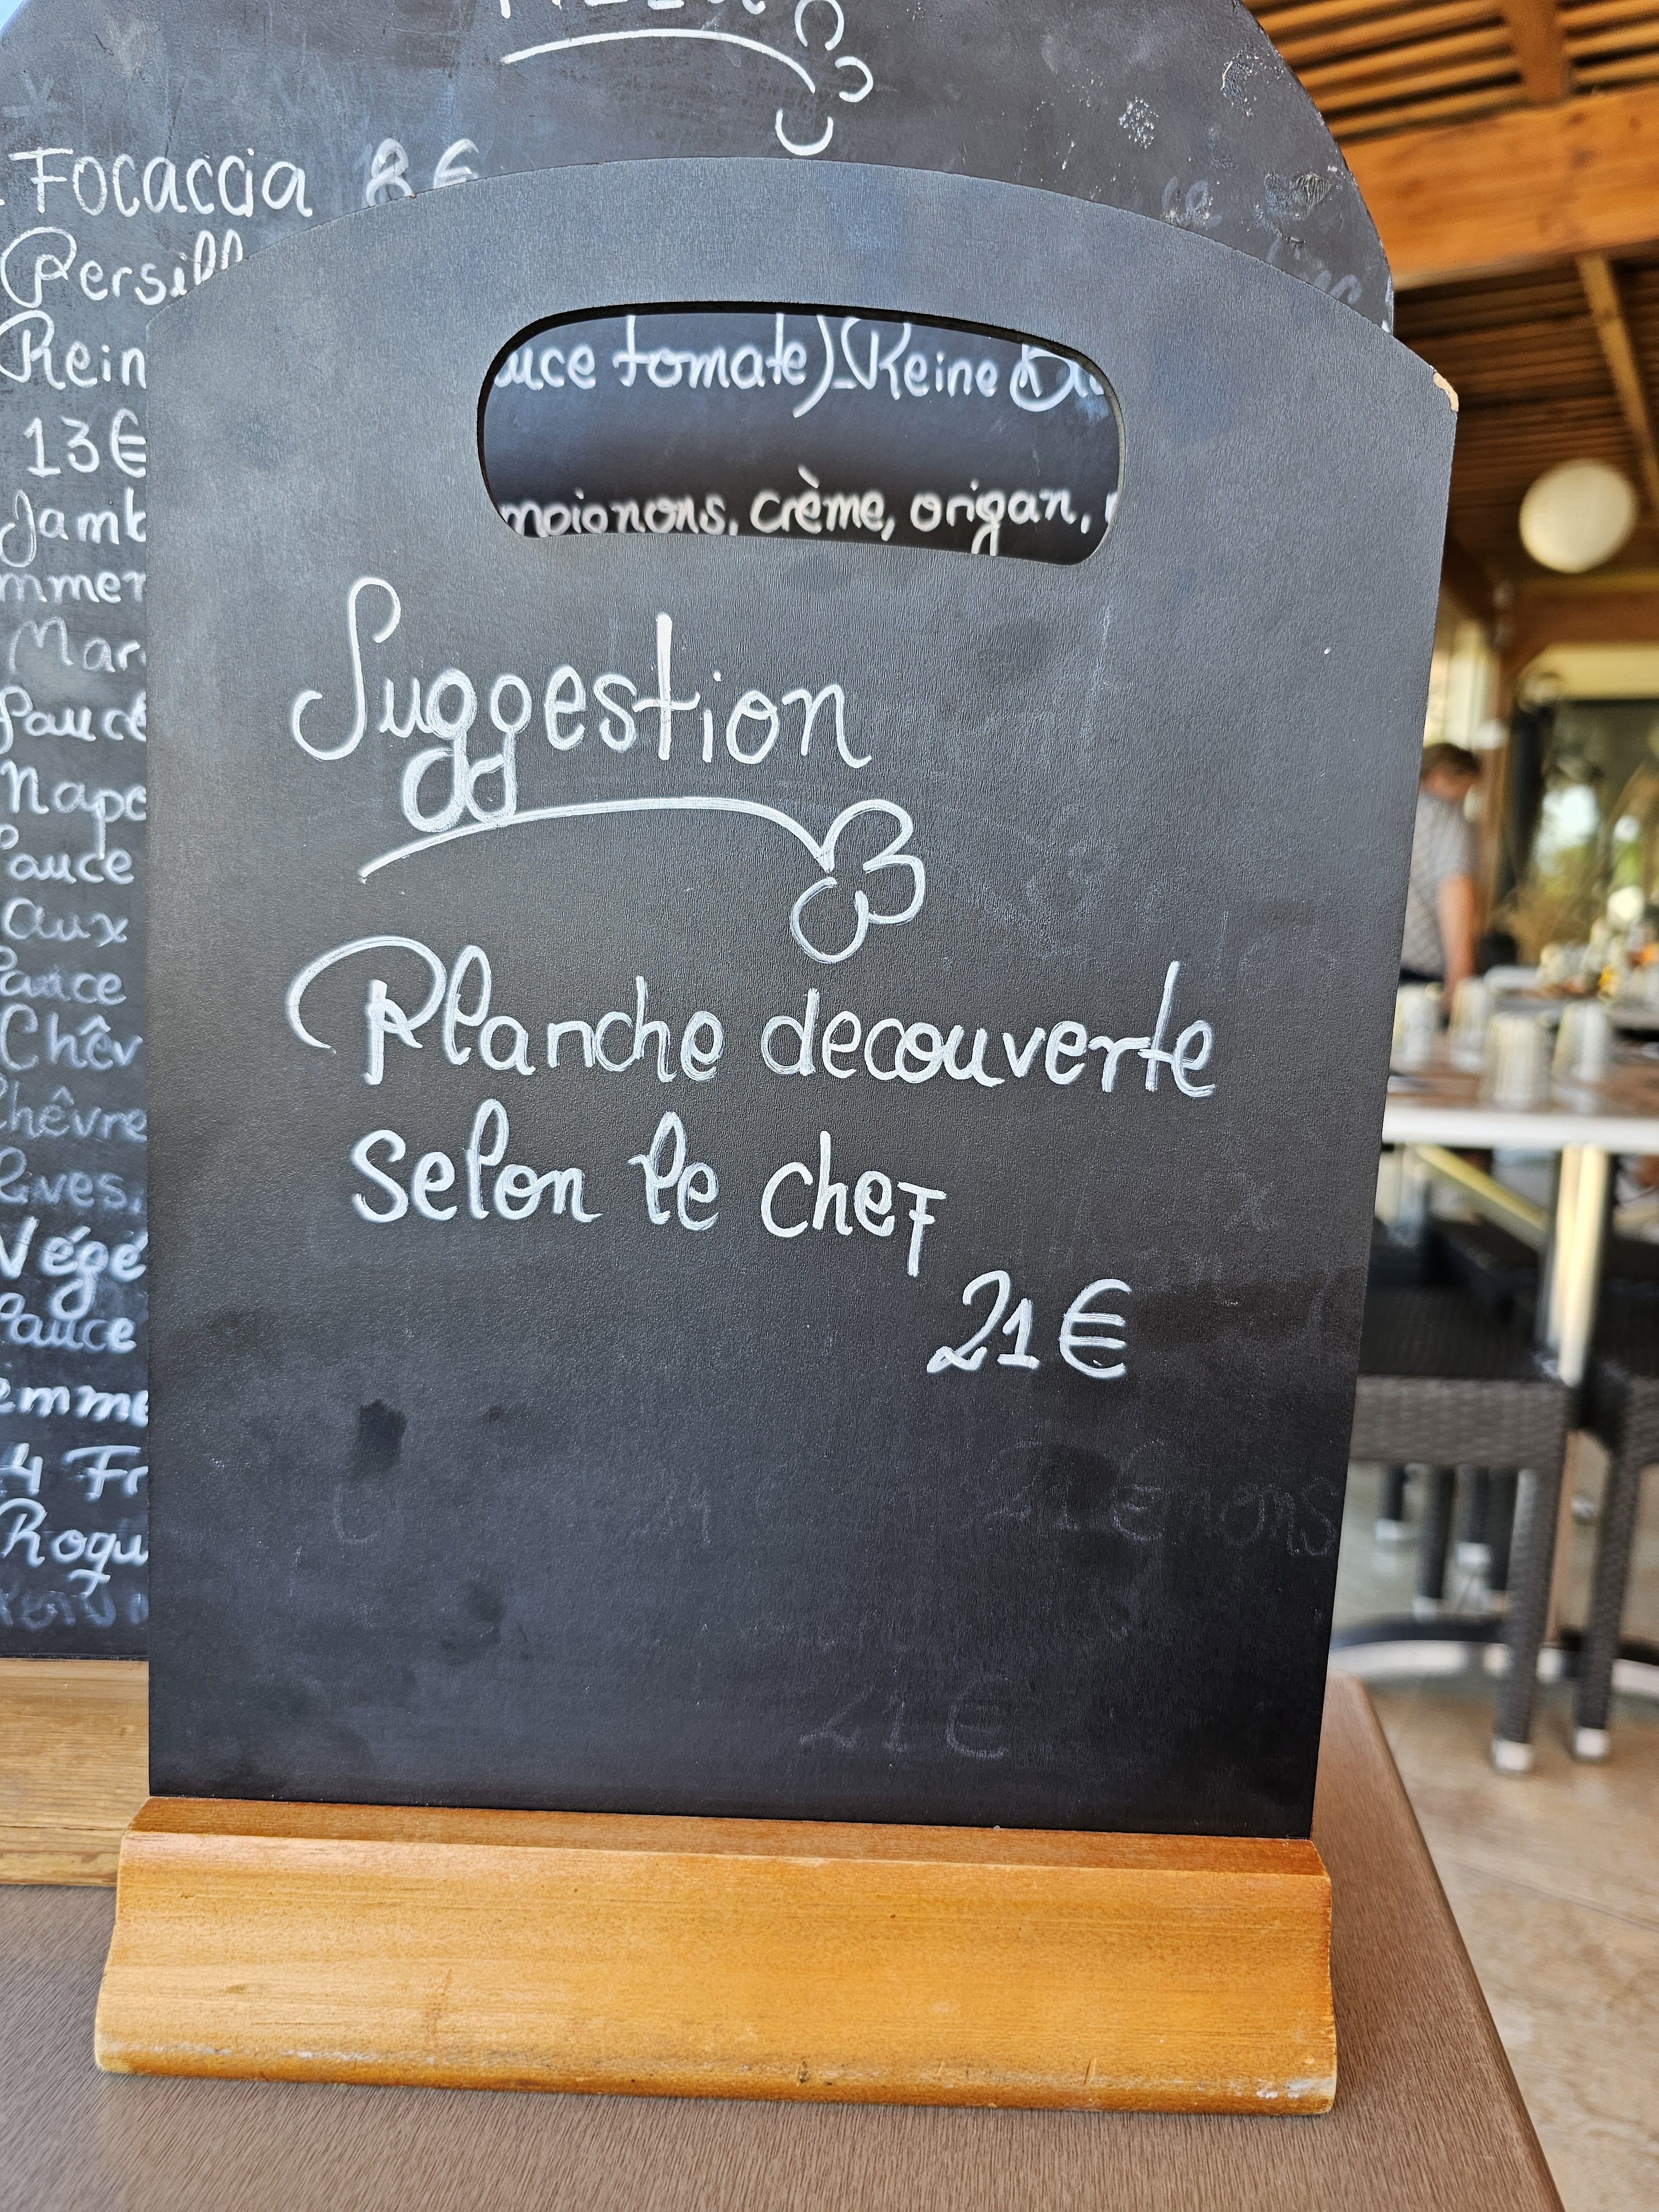 Focaccia 8€
Persill
Rein
uce tomate)_Reine
13€
Jamb
crème, origan,
mmen
Mar
Sauce
Napo
Sauce
aux
Sauce
Chêv
Chêvre
lives,
Végé
Sauce
emme
4 Fr
Roqu
Suggestion
Planche decouverte
selon le chef
21€
21€
21€